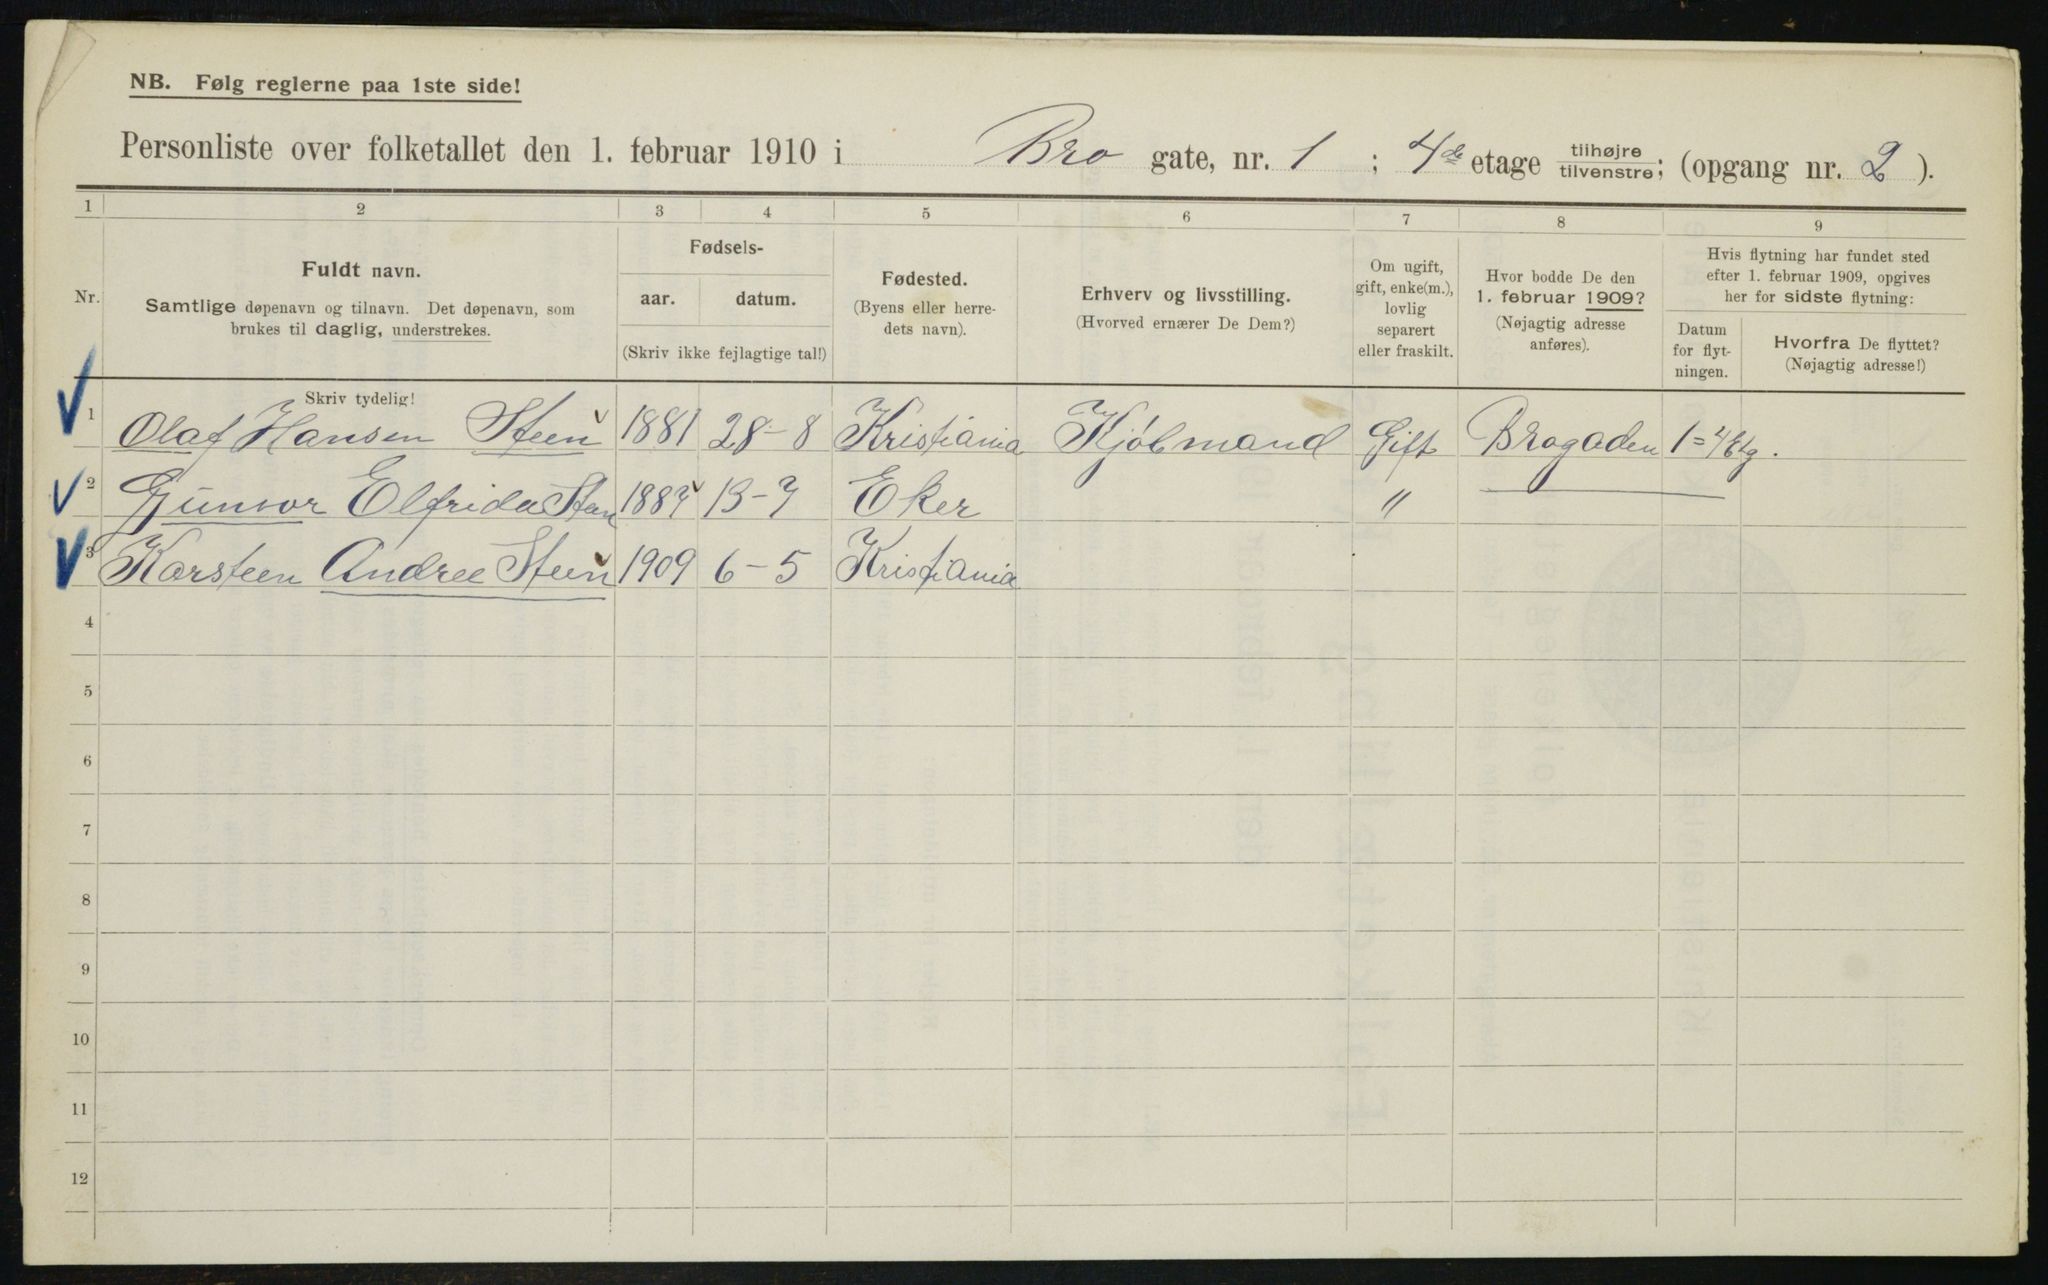 NB. Følg reglerne paa 1ste side!
Personliste over folketallet den 1. februar 1910 i Bro gate, nr. 1 ; 4de etage tilhøjre tilvenstre; (opgang nr. 2 ).
1 2 3 4 5 6 7 8 9
Nr.
Fuldt navn.
Samtlige døpenavn og tilnavn. Det døpenavn, som
brukes til daglig, understrekes.
Fødsels-
aar. datum.
(Skriv ikke fejlagtige tal!)
Fødested.
(Byens eller herre-
dets navn).
Erhverv og livsstilling.
(Hvorved ernærer De Dem?)
Om ugift,
gift, enke(m.),
lovlig
separert
eller fraskilt.
Hvor bodde De den
1. februar 1909?
(Nøjagtig adresse
anføres).
Hvis flytning har fundet sted
efter 1. februar 1909, opgives
her for sidste flytning:
Datum
for flyt-
ningen.
Hvorfra De flyttet?
(Nøjagtig adresse!)
Skriv tydelig!
1 Olaf Hansen Steen 1881 28-8 Kristiania Kjøbmand Gift Brogaden 1=4 Etg.
2 Gunvor Elfrida 13-7 Eker "
3 Karsteen Andree Steen 1909 6-5 Kristiania
4
5
6
7
8
9
10
11
12